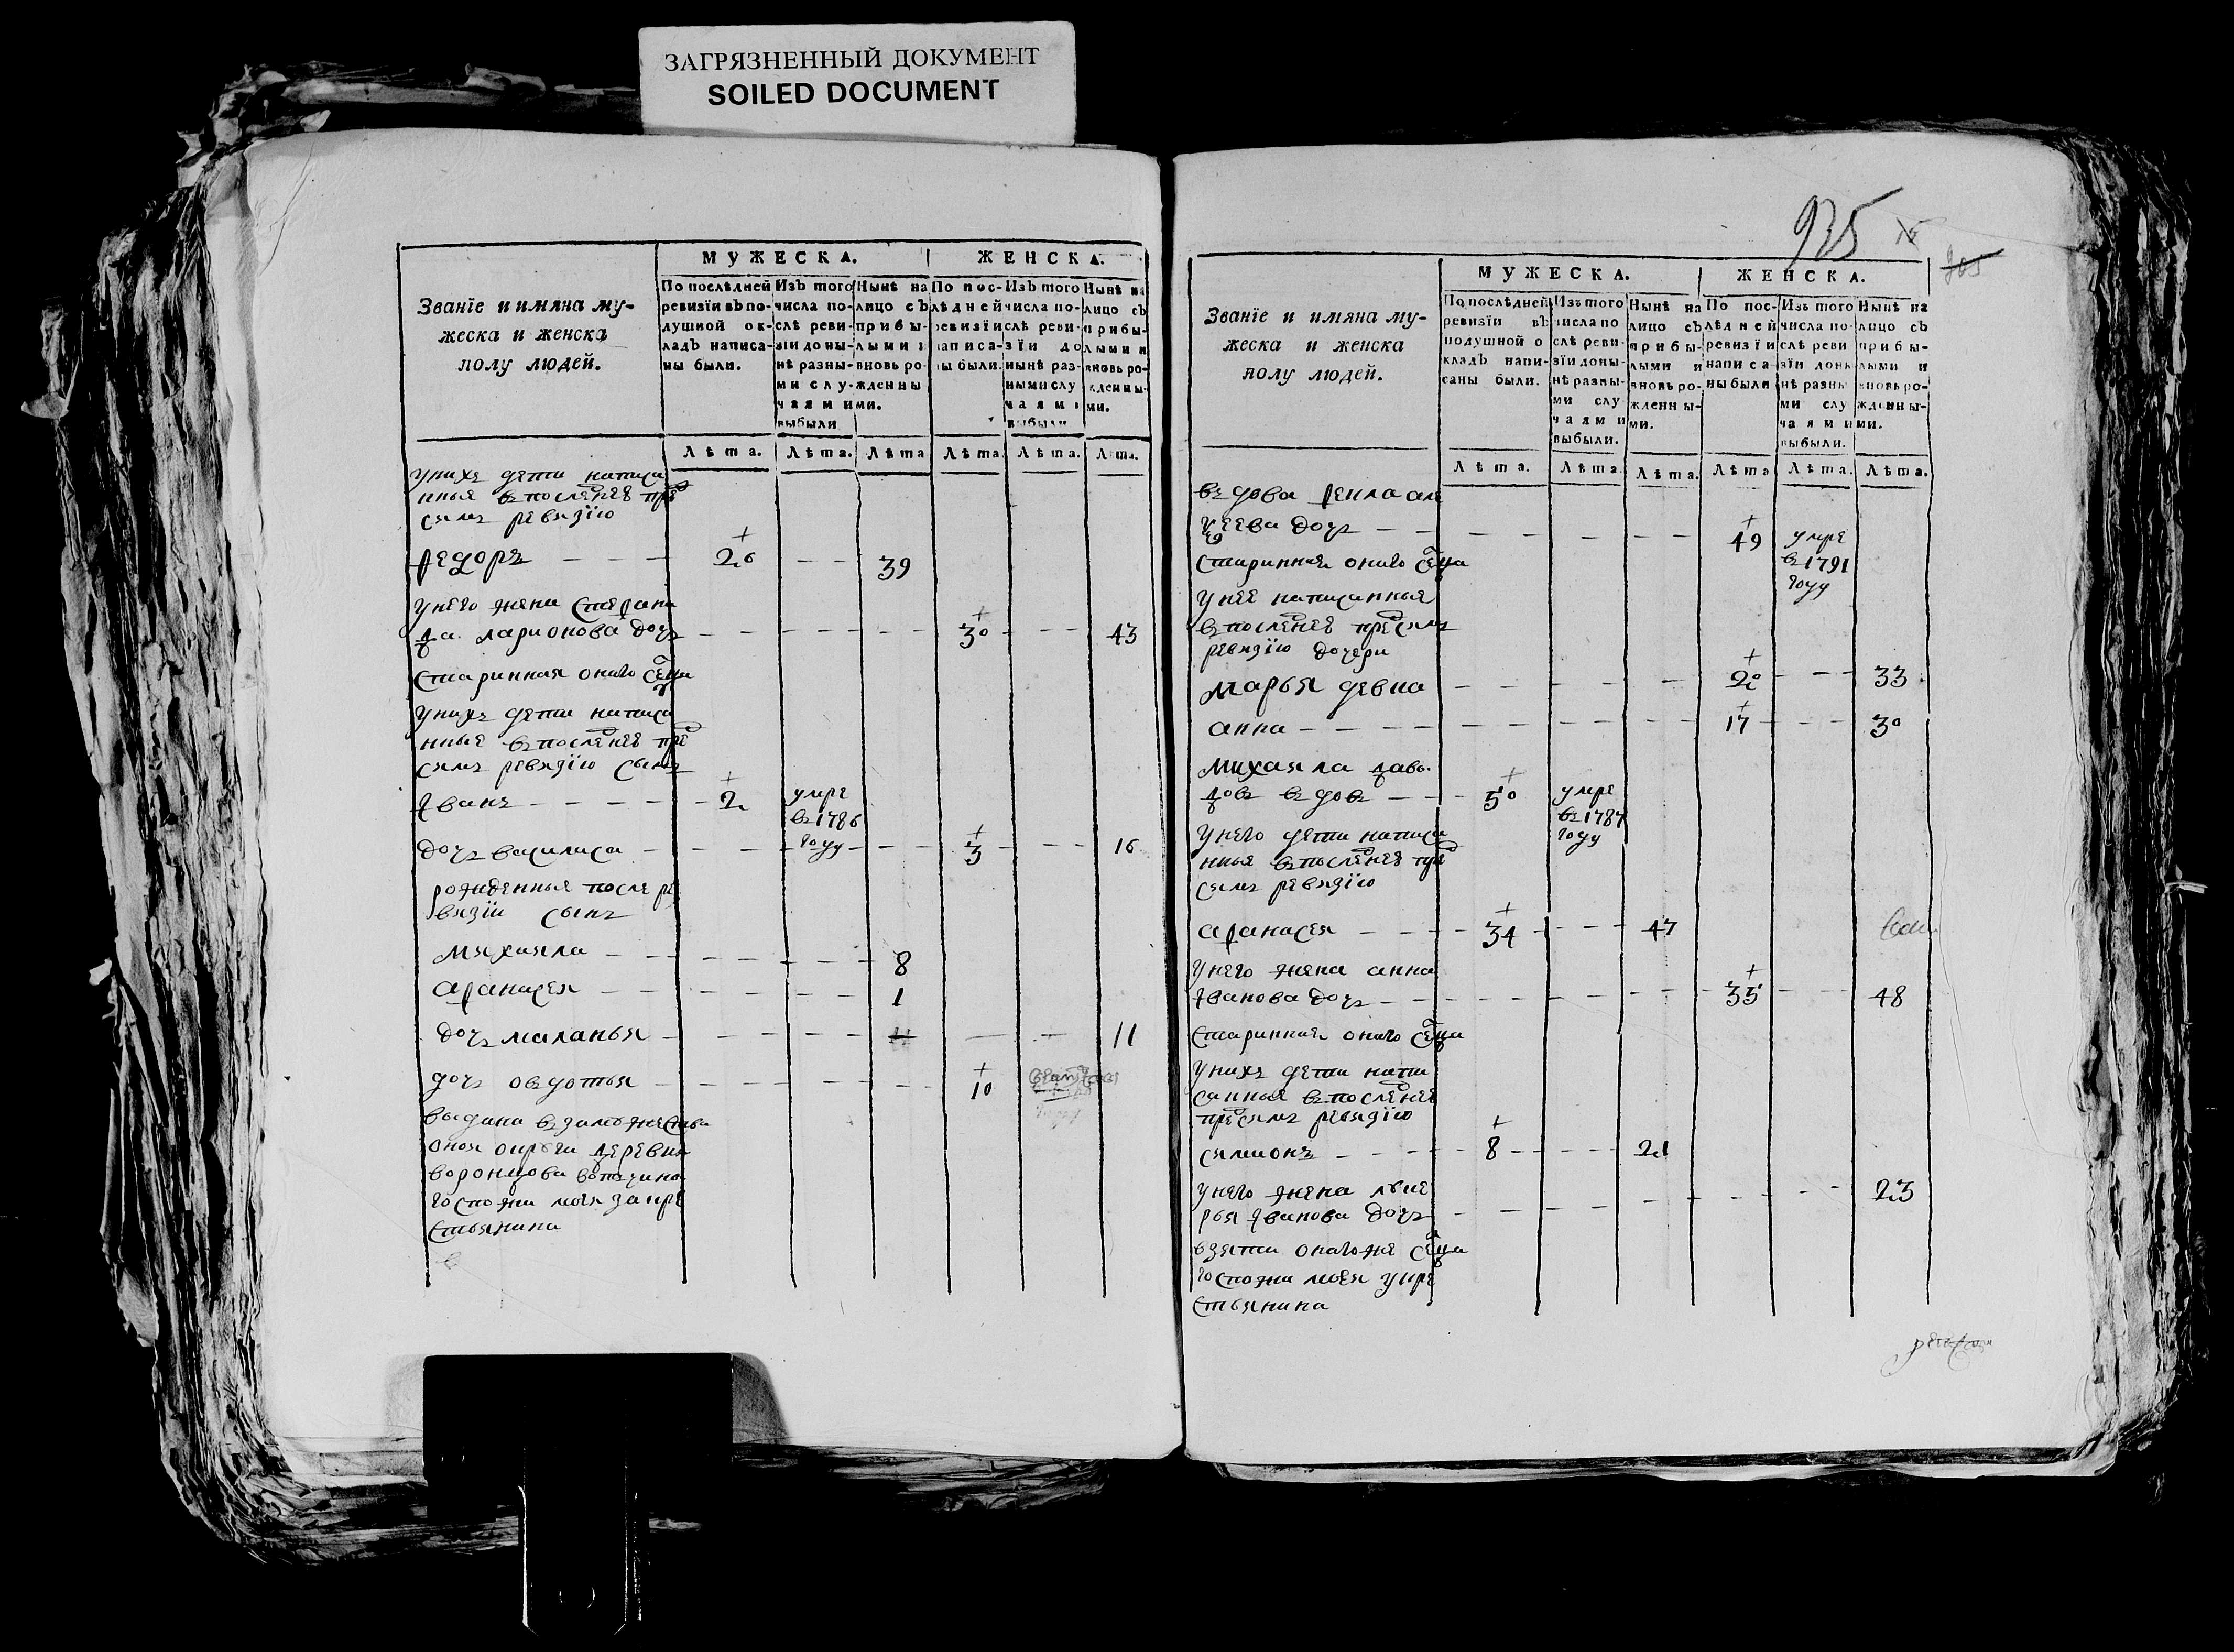 ЗАГРЯЗНЕННЫЙ ДОКУМЕНТ
SOILED DOCUMENT
МУЖЕСКА. ЖЕНСКА.
Званїе и имяна му-
жеска и женска
полу людей.
По послѣдней
ревизїи въ по-
душной ок-
ладъ написа-
ны были.
Изъ того
числа по-
слѣ реви-
зїи до ны-
нѣ разны-
ми слу-
чаями
выбыли
Нынѣ на
лицо съ
прибы-
лыми и
вновь ро-
жденны
ми.
По пос-
лѣдней
ревизїи
написа-
ны были.
Изъ того
числа по-
слѣ реви-
зїи до
нынѣ раз-
ными слу
чаями
выбыли
Нынѣ на
лицо съ
прибы-
лыми и
вновь ро-
жденны-
ми.
Лѣта. Лѣта. Лѣта Лѣта. Лѣта. Лѣта.
у них детти написа
нные в последней пред
сям ревизїю
федоръ 26 39
у него жена стефани
да ларионова дочь 30 43
старинная оного селца
у них дети написа
нные въ последней пред
сям ревизїю сынъ
Иванъ 2 умре
въ 1786
году
дочь василиса 3 16
рожденные после ре
визїи сынъ
михаила 8
афанасей 1
дочь маланья 11
дочь овдотья 10
выдана в замужество
оной округи деревня
воронцова вотчины
госпожи моей за кре
стьянина
925
МУЖЕСКА. ЖЕНСКА.
Званїе и имяна му-
жеска и женска
полу людей.
По послѣдней
ревизїи въ
подушной о
кладъ напи-
саны были.
Изъ того
числа по
слѣ реви-
зїи доны-
нѣ разны-
ми слу
чаями
выбыли.
Нынѣ на
лицо съ
прибы-
лыми и
вновь ро-
жденны-
ми.
По пос-
лѣдней
ревизїи
написа-
ны были
Изъ того
числа по-
слѣ реви
зїи доны
нѣ разны
ми слу
чаями
выбыли.
Нынѣ на
лицо съ
прибы-
лыми и
вновь ро-
жденны-
ми.
Лѣта. Лѣта. Лѣта. Лѣта Лѣта. Лѣта.
вдова
дочь 49 умре
въ 1791
году
старинная оного селца
у нее написанные
в последней пред сям
ревизїю дочери
марья девка 20 33
анна 17 30
михаила давы
довъ вдовъ 50 умре
въ 1787
году
у него дети написа
нные в последней пред
сям ревизїю
афанасей 34 47
у него жена анна
Иванова дочь 35 48
старинная оного селца
у них дети напи
санные в последней
пред сям ревизїю
сямионъ 8 21
у него жена лыке
рья Иванова дочь 23
взята оного же селца
госпожи моей у кре
стьянина